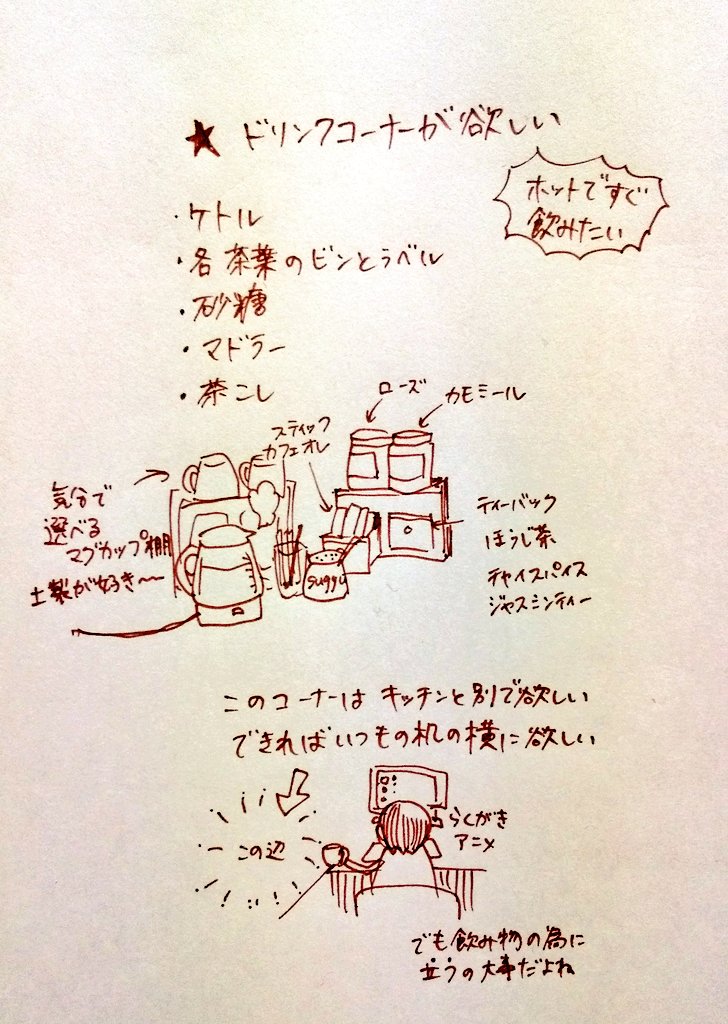 ★ ドリンクコーナーが欲しい
ホットですぐ
飲みたい
・ケトル
・各茶葉のビンとラベル
・砂糖
・マドラー
・茶こし
ローズ
カモミール
スティック
カフェオレ
気分で
選べる
マグカップ棚
土製が好き〜
ティーバック
ほうじ茶
チャイスパイス
ジャスミンティー
このコーナーは キッチンと別で欲しい
できればいつもの机の横に欲しい
この辺
らくがき
アニメ
でも飲み物の為に
立つの大事だよね